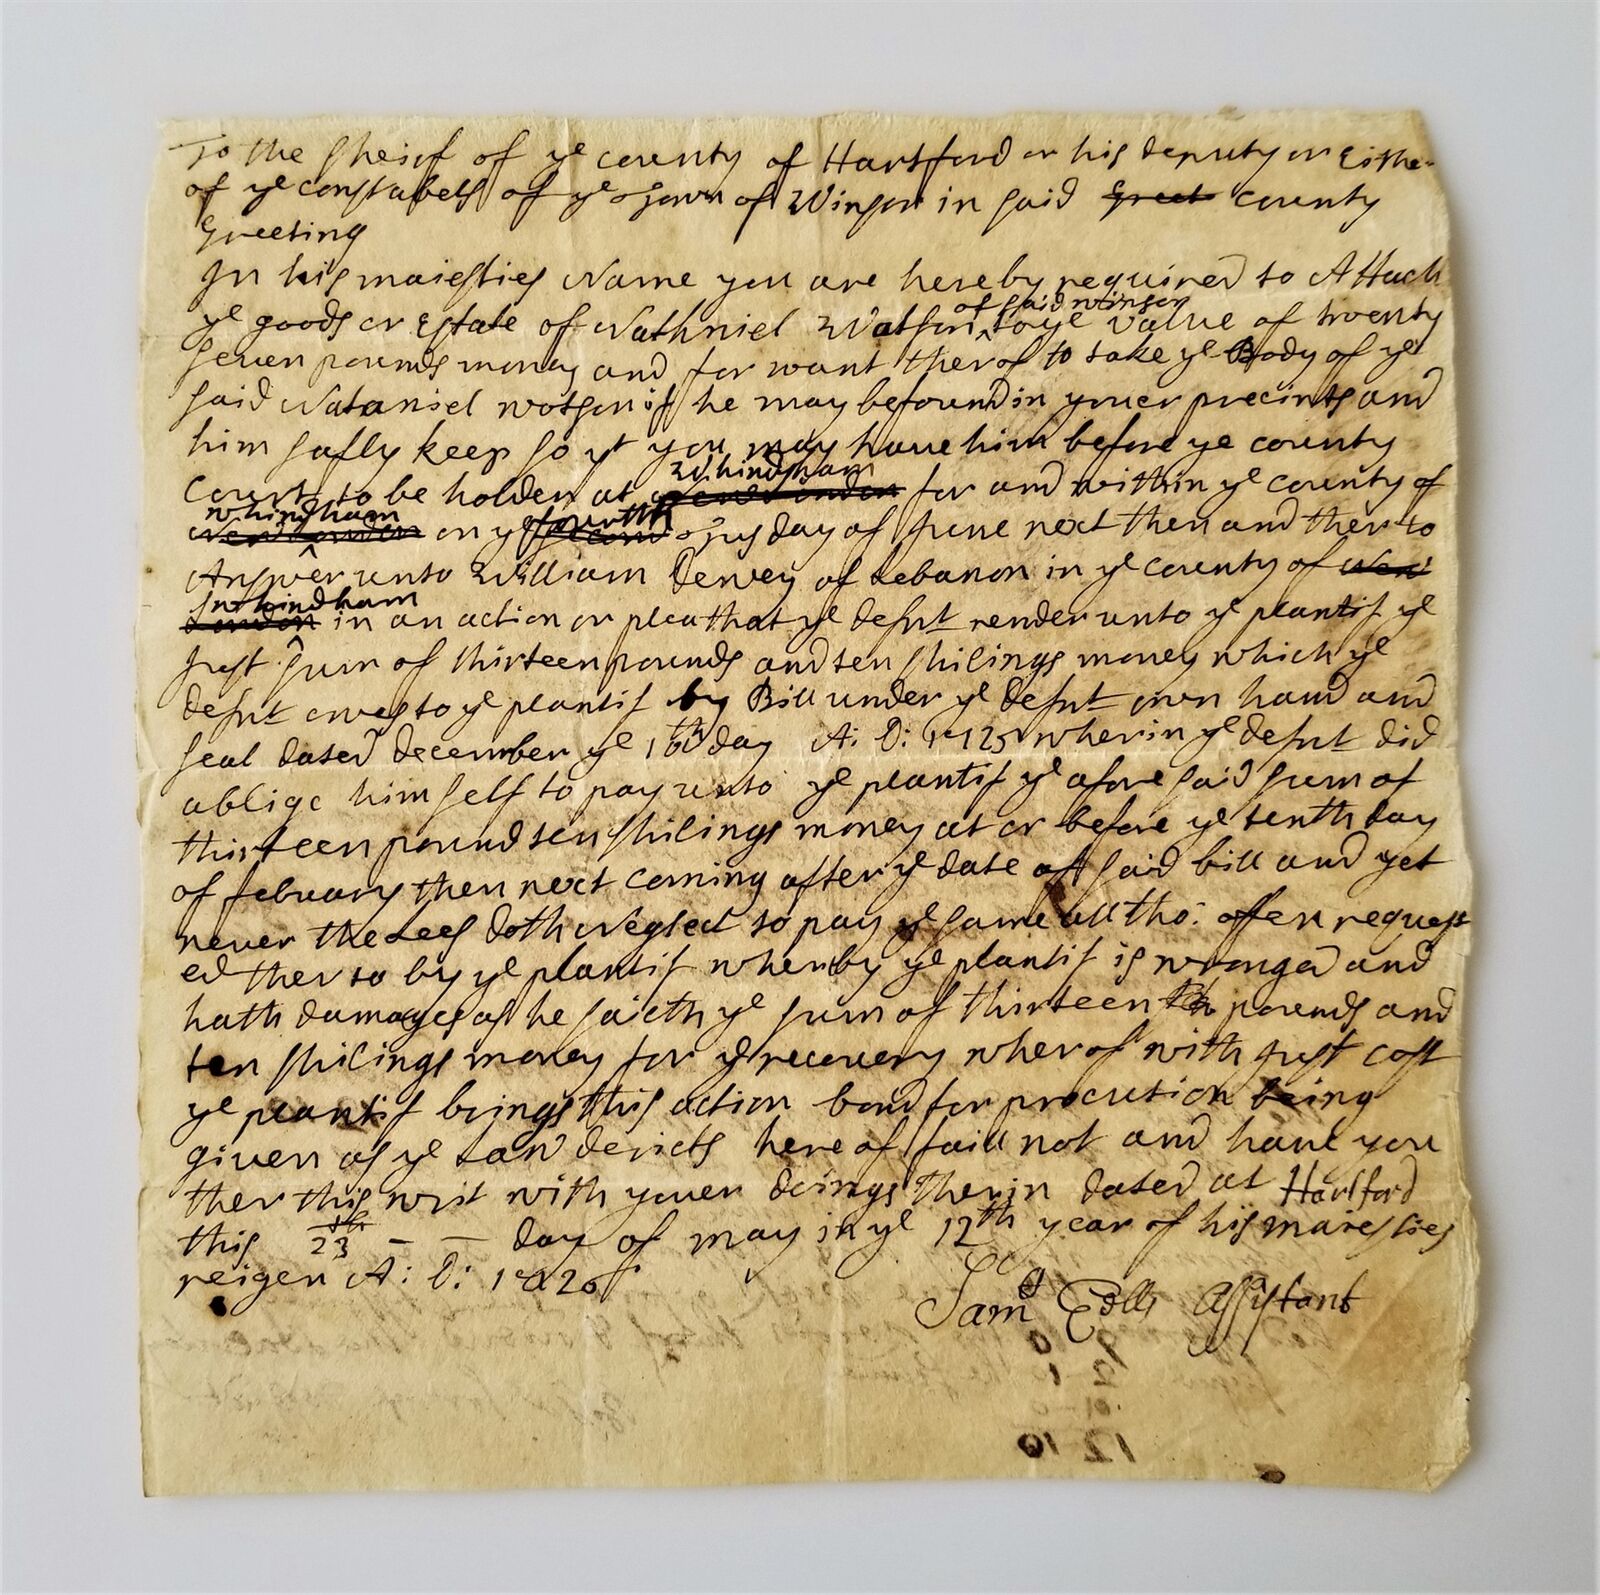 To the Sheirf of ye county of Hartford or his deputy or Either
of ye constabels of ye Town of Winsor in said Greet county
Greeting
In his maiesties Name you are hereby required to Attach
of said winsor
ye goods or Estate of Nathniel Watson to ye value of twenty
seven pounds money and for want therof to take ye Body of ye
said Nataniel wotson if he may be found in youer precints and
him safly keep so yt you may have him before ye county
Whindham
Court to be holden at New London for and within ye county of
whindham fourth
New London on ye second Tusday of June next then and ther to
Answer unto William Dewey of Lebanon in ye county of New
whindham
London in an action or plea that ye defnt render unto ye plantif ye
just sum of thirteen pounds and ten shilings money which ye
defnt owes to ye plantif by Bill under ye defnt own hand and
seal dated december ye 16th day A: D: 1725 wherin ye defnt did
oblige him self to pay unto ye plantif ye afore said sum of
thirteen pound ten shilings money at or before ye tenth day
of february then next coming after ye date of said bill and yet
never the Less doth Neglect to pay ye same all tho: offen request
ed ther to by ye plantif wherby ye plantif is wronged and
hath damages as he saieth ye sum of thirteen pounds and
ten shilings money for ye recovery wherof with just cost
ye plantif brings this action bond for procution being
given as ye Law dericts here of faill not and have you
ther this writ with youer doings therin dated at Hartford
this 23th day of may in ye 12th year of his maiesties
reigen A: D: 1726
Samll Eells Assistant
0 9
1 2
12 10